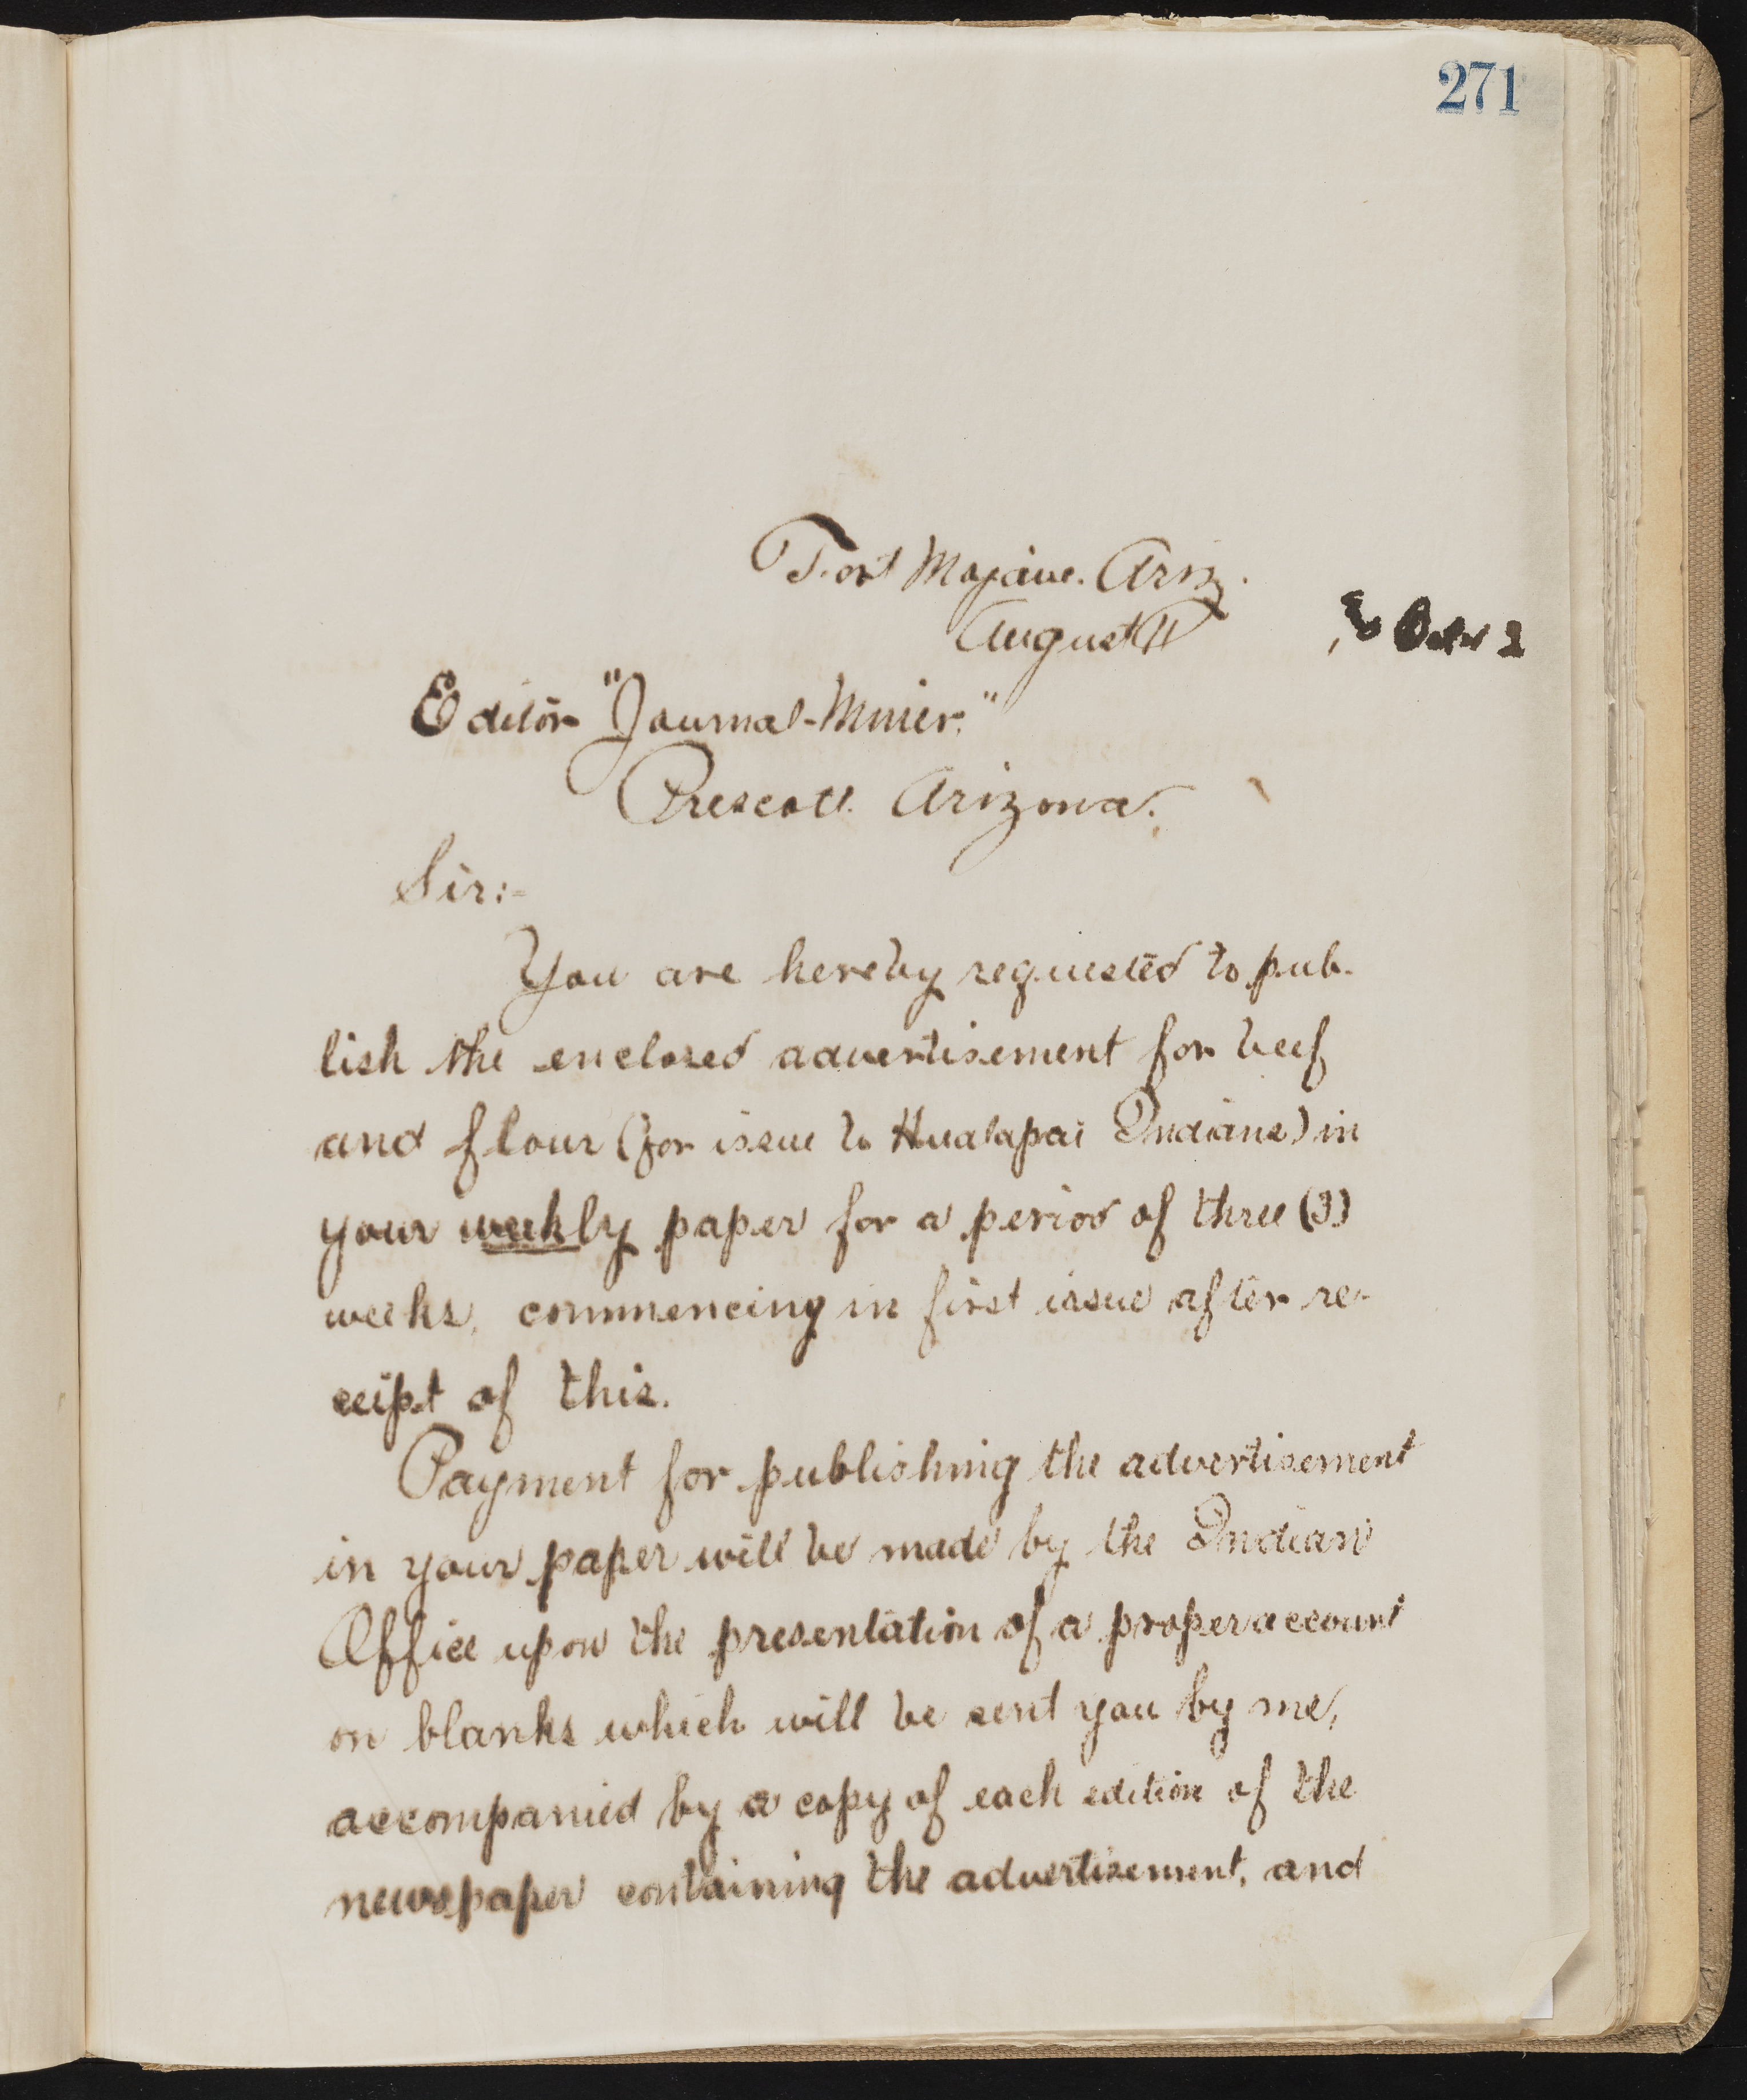 271
Fort Mojave. Ariz.
August 4
Editor "Journal-Miner."
Prescott. Arizona.
Sir:-
You are hereby requested to pub-
lish the enclosed advertisement for beef
and flour (for issue to Hualapai Indians) in
your weekly paper for a period of three (3)
weeks, commencing in first issue after re-
ceipt of this.
Payment for publishing the advertisement
in your paper will be made by the Indian
Office upon the presentation of a proper account
on blanks which will be sent you by me,
accompanied by a copy of each edition of the
newspaper containing the advertisement, and